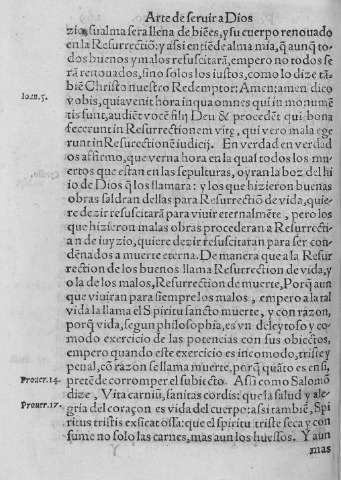 Arte de seruir a Dios
zio, su alma sera llena de biẽes, y su cuerpo renouado
en la Resurrectiõ: y assi entiẽde alma mia, q̃ aunq̃ to-
dos buenos y malos resuscitarã, empero no todos se
rã renouados, sino solos los iustos, como lo dize tã-
biẽ Christo nuestro Redemptor: Amen amen dico
Ioan. 5.
vobis, quia venit hora in qua omnes qui in monumẽ
tis sunt, audiẽt vocẽ filij Dei, & procedẽt qui bona
fecerunt in Resurrectionem vitę, qui vero mala ege
runt in Resurectionẽ iudicij. En verdad en verdad
os affirmo, que verna hora en la qual todos los mu-
ertos que estan en las sepulturas, oyran la boz del hi
jo de Dios q̃ los llamara: y los que hizieron buenas
obras saldran dellas para Resurrectiõ de vida, quie-
re dezir resuscitarã para viuir eternalmẽte, pero los
que hizieron malas obras procederan a Resurrecti-
on de iuyzio, quiere dezir resuscitaran para ser con-
dẽnados a muerte eterna. De manera que a la Resur
rection de los buenos llama Resurrection de vida, y
o la de los malos, Resurrection de muerte, Porq̃ aun
que viuiran para siempre los malos, empero a la tal
vida la llama el Spiritu sancto muerte, y con razon,
porq̃ vida, segun philosophia, es vn deleytoso y co-
modo exercicio de las potencias con sus obiectos,
empero quando este exercicio es incomodo, triste y
penal, cõ razon se llama muerte, porq̃ quãto es en si,
Prouer. 14.
pretẽde corromper el subiecto. Assi como Salomõ
dize, Vita carniũ, sanitas cordis: que la salud y ale-
Prouer. 17.
gria del coraçon es vida del cuerpo: assi tambiẽ, Spi
ritus tristis exsicat ossa: que el spiritu triste seca y con
sume no solo las carnes, mas aun los huessos. Y aun
mas